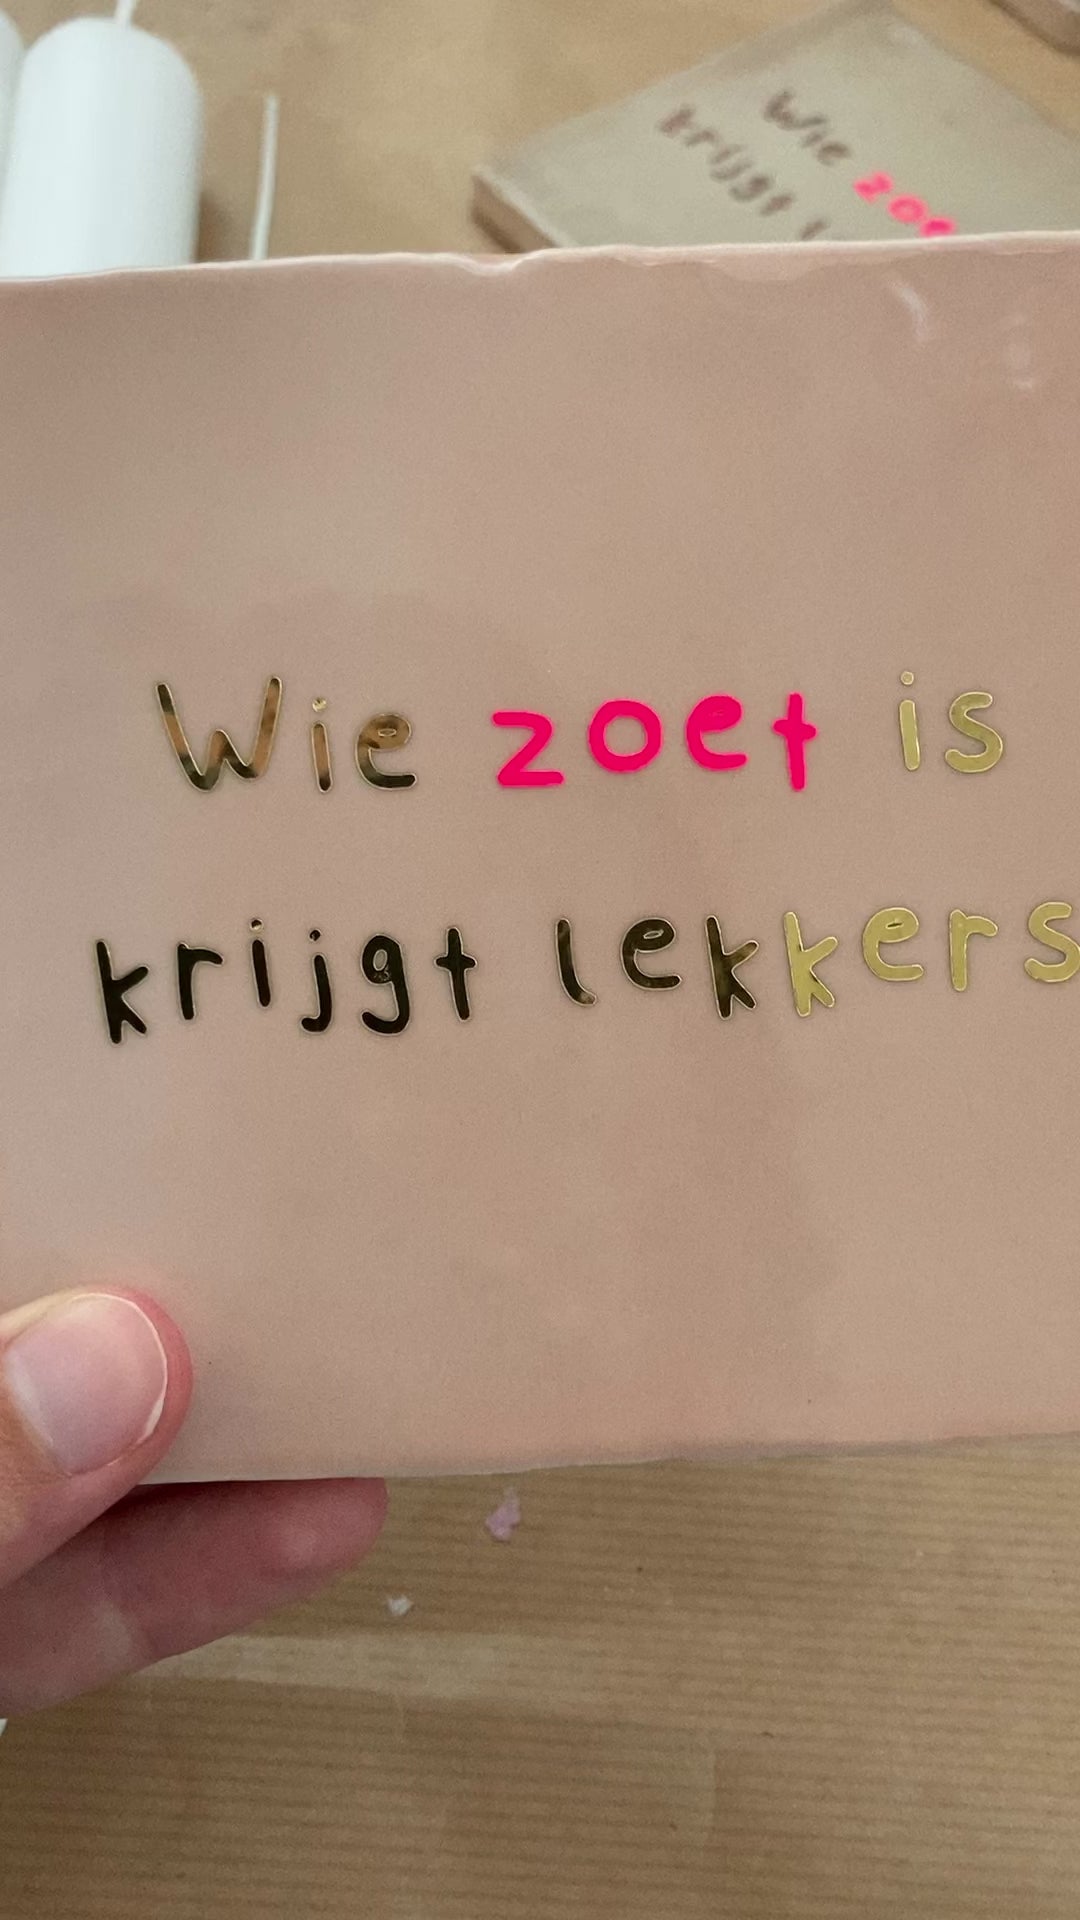 Wie zoe
krijgt l
Wie zoet is
krijgt lekkers